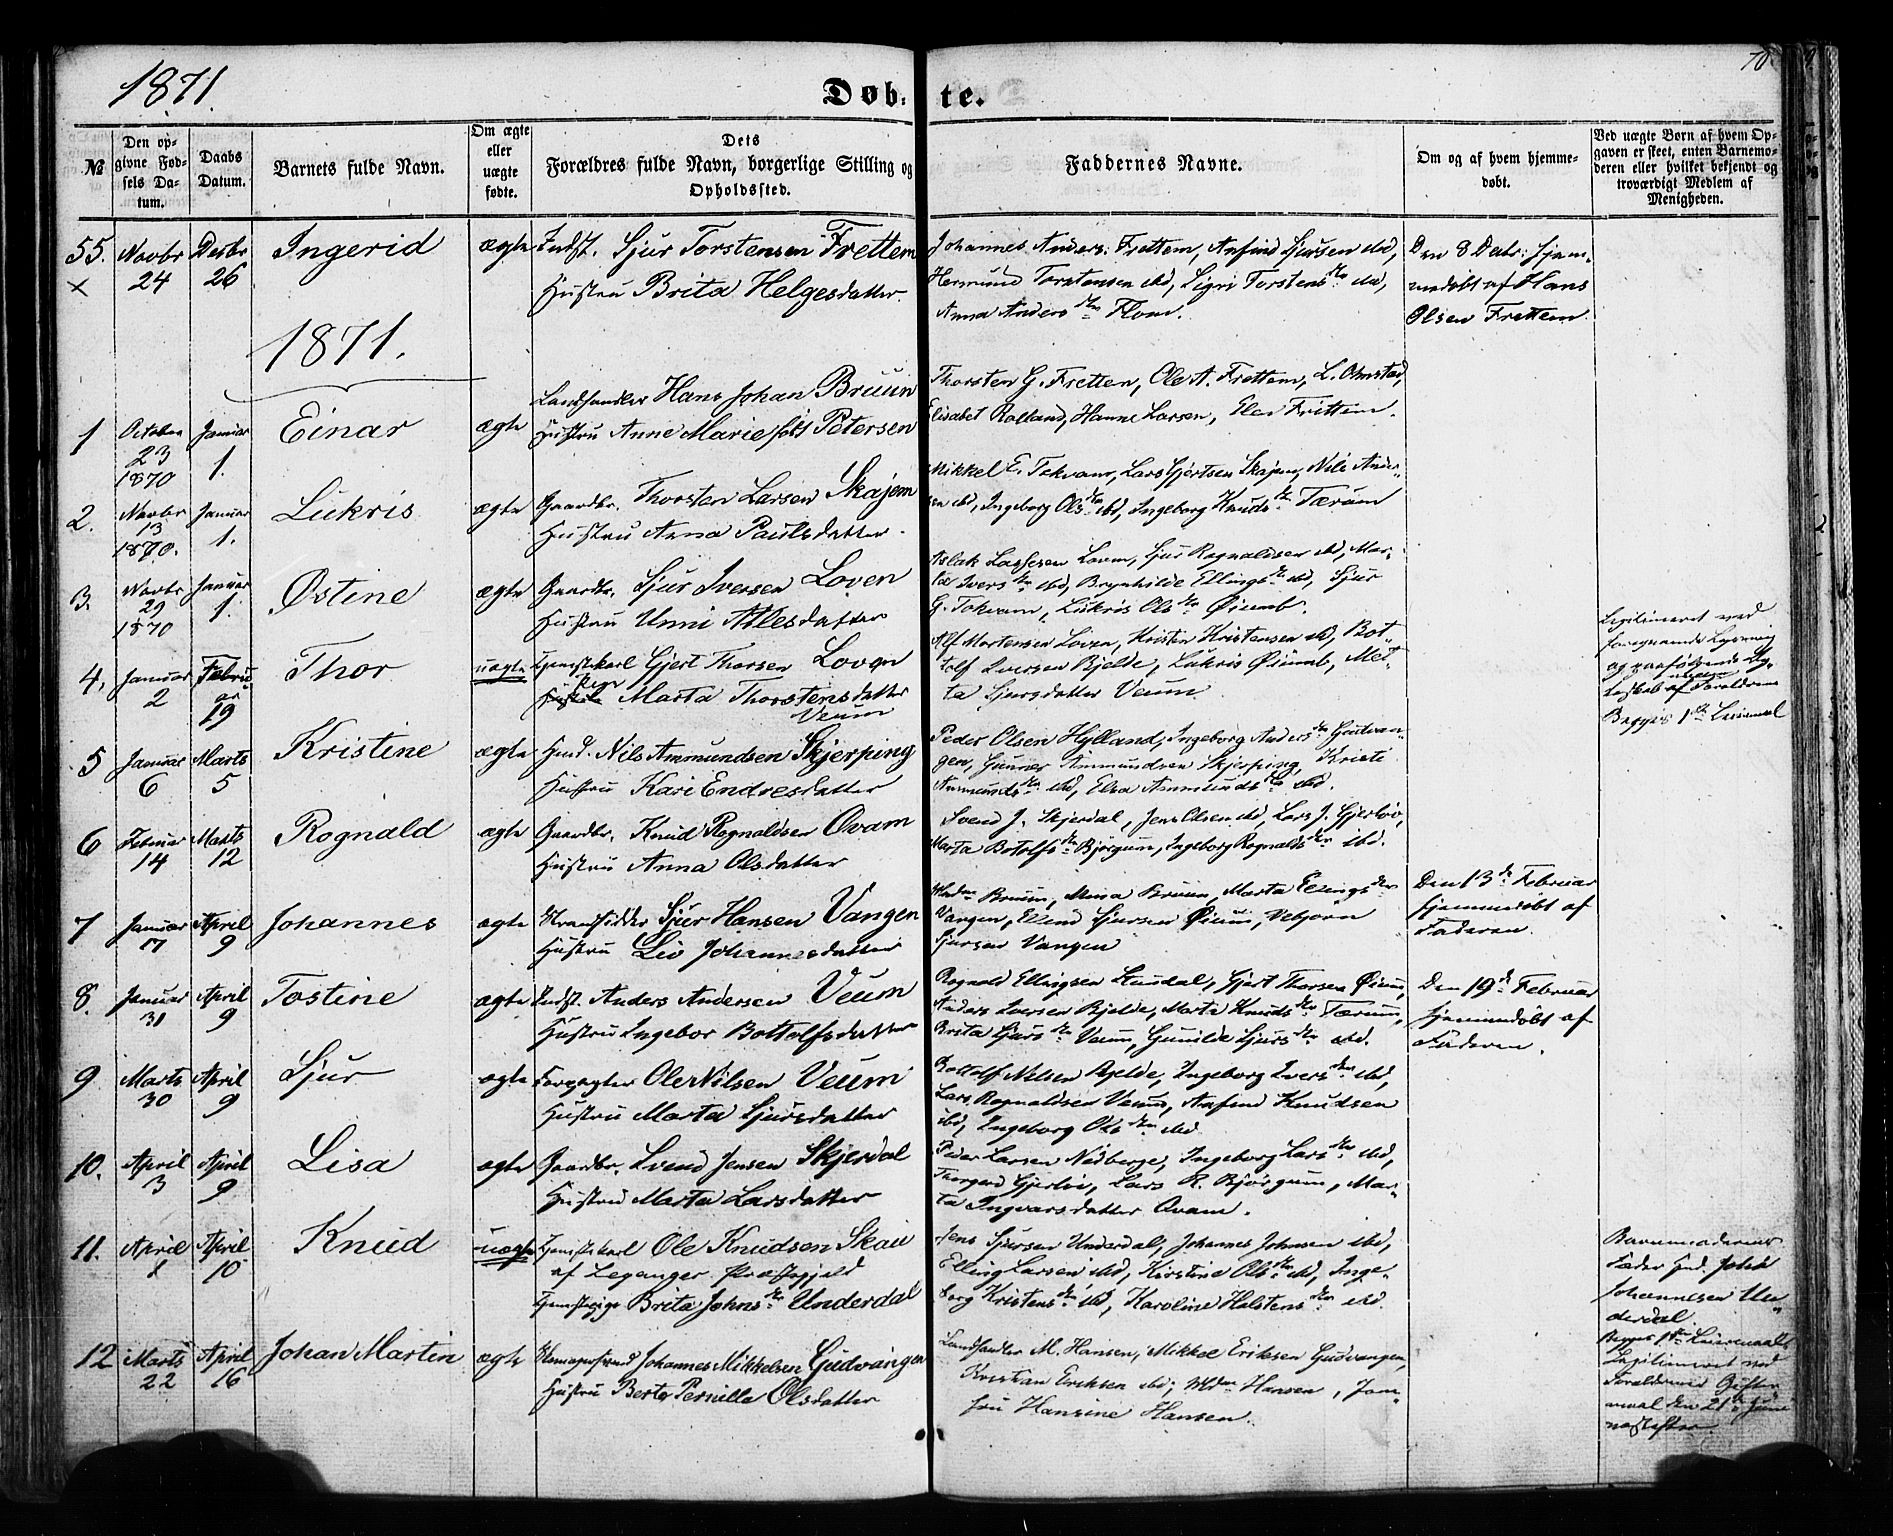 1871.
70.
Døb-te.
№
Den opgivne Fødsels Datum.
Daabs Datum.
Barnets fulde Navn.
Om ægte eller uægte fødte.
Dets Forældres fulde Navn, borgerlige Stilling og Opholdssted.
Faddernes Navne.
Om og af hvem hjemmedøbt.
Ved uægte Børn af hvem Opgaven er skeet, enten Barnemoderen eller hvilket bekjendt og troværdigt Medlem af Menigheden.
55. Novbr 24 Decbr 26 Ingerid ægte Indst. Sjur Torstensen Frettem
Hustru Brita Helgesdatter
Johannes Anders. Frettem, Anfind Sjursen ibd,
Hermund Torstensen ibd, Sigri Torstensdtr ibd,
Anna Andersdtr Flom.
Den 8 Decbr. hjem-
medøbt af Hans
Olsen Frettem
1871.
1 October 23 1870 Januar 1. Einar ægte Landhandler Hans Johan Bruun
Hustru Anne Marie født Petersen
Thorsten G. Fretten, Ole A. Frettem, L. Olmstad,
Elisabet Rolland, Hanne Larsen, Else Frettem.
2. Novbr 13 1870. Januar 1. Lukris ægte Gaardbr. Thorsten Larsen Skajem
Hustru Anna Paulsdatter
Mikkel E. Tokvam, Lars Gjertsen Skajem, Nils Ander-
sen ibd, Ingeborg Olsdtr ibd, Ingeborg Knudsdtr Tærum
3. Novbr 29 1870 Januar 1. Østine ægte Gaardbr. Sjur Iversen Loven
Hustru Unni Atlesdatter
Aslak Lassesen Loven, Sjur Rognaldsen ibd, Mar-
ta Iversdtr ibd, Brynhilde Ellingsdtr ibd, Sjur
G. Tokvam, Lukris Olsdtr Øiumb.
4. Januar 2 Februar 19 Thor uægte Tjenestekarl Gjert Thorsen Loven
Pige Marta Thorstensdatter
Veum
Alf Mortensen Loven, Kristen Kristensen ibd, Bot-
tolf Iversen Bjelde, Lukris Øiumb, Met-
ta Sjursdatter Veum
Legitimeret ved
foregaaende Lysning
og paafølgende Æg-
teskab af Forældrene
Begges 1ste Leiermaal
5 Januar 6 Marts 5 Kristine ægte Huusm. Nils Ammundsen Skjerping
Hustru Kari Endresdatter
Peder Olsen Hylland, Ingeborg Andersdtr Gudvan-
gen, Gunner Ammundsen Skjerping, Kristi
Ammundsdtr ibd, Elsa Ammundsdtr ibd.
6 Februar 14 Marts 12 Rognald ægte Gaardbr. Knud Rognaldsen Ovam
Hustru Anna Olsdatter
Svend J. Skjerdal, Jens Olsen ibd, Lars J. Gjerløv,
Marta Botolfsdtr Bjørgum, Ingeborg Rognaldsdtr ibd.
7 Januar 17 April 9 Johannes ægte Strandsidder Sjur Hansen Vangen
Hustru Liv Johannesdatter
Madm Bruun, Mina Bruun, Marta Ellingsdtr
Vangen, Ellend Sjursen Øium, Vebjørn
Sjursen Vangen
Den 13de Februar
hjemmedøbt af
Faderen.
8. Januar 31 April 9 Tostine ægte Indst. Anders Andersen Veum
Hustru Ingebor Bottolfsdatter
Rognald Ellingsen Stundal, Gjert Thorsen Øium,
Anders Iversen Bjelde, Marta Knudsdtr Tærum,
Brita Sjursdtr Veum, Gunilde Sjursdtr ibd.
Den 19de Februar
hjemmedøbt af
Faderen.
9. Marts 30 April 9 Sjur ægte Forpagter Ole Nilsen Veum
Hustru Marta Sjursdatter
Bottolf Nilsen Bjelde, Ingeborg Iversdtr ibd,
Lars Rognaldsen Veum, Anfind Knudsen
ibd, Ingeborg Olsdtr ibd
10. April 3 April 9 Lisa ægte Gaardbr. Svend Jensen Skjerdal
Hustru Marta Larsdatter
Peder Larsen Nedberge, Ingeborg Larsdtr ibd,
Thorgerd Gjerløv, Lars R. Bjørgum, Mar-
ta Ingvarsdatter Ovam.
11. April 1 April 10 Knud uægte Tjenestekarl Ole Knudsen Skau
af Leganger Præstegjeld
Tjenestepige Brita Johnsdtr Underdal
Jens Sjursen Underdal, Johannes Johnsen ibd,
Elling Larsen ibd, Kirstine Olsdtr ibd, Inge-
borg Kristensdtr ibd, Karoline Holstensdtr ibd.
Barnemoderens
Fader John
Johannesen Un-
derdal
Begges 1ste Leiermaal
Legitimeret ved
Forældrenes Gifter-
maal den 21de Juni
næstefter.
12 Marts 22 April 16 Johan Martin ægte Johannes Mikkelsen Gudvangen
Hustru Berte Pernille Olsdatter
Landhandler M. Hansen, Mikkel Eriksen Gudvangen,
Kristian Eriksen ibd, Mdm Hansen, Jom-
fru Hansine Hansen.